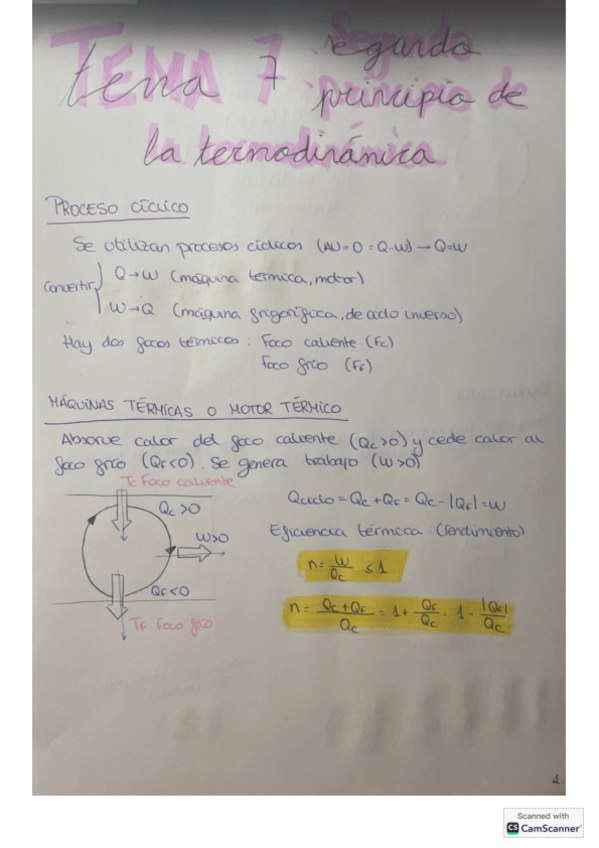 Tema 7 Segundo
principio de
la termodinámica
PROCESO CÍCLICO
Se utilizan procesos cíclicos (ΔU=0=Q-W)→Q=W
Convertir { Q→W (máquina térmica, motor)
W→Q (máquina frigorífica, de ciclo inverso)
Hay dos focos térmicos: Foco caliente (Fc)
Foco frío (Ff)
MÁQUINAS TÉRMICAS O MOTOR TÉRMICO
Absorve calor del foco caliente (Qc>0) y cede calor al
foco frío (QF<0). Se genera trabajo (W>0)
Tc Foco caliente
Qc>0
W>0
QF<0
TF Foco frío
Qciclo = Qc+QF = Qc-|QF| = W
Eficiencia térmica: (rendimiento)
n = W/Qc ≤ 1
n = Qc+QF/Qc = 1+ QF/Qc = 1 - |QF|/Qc
1
Scanned with
CS CamScanner